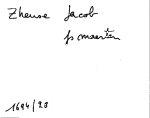 Zheuse Jacob
fs maerten
1694/23